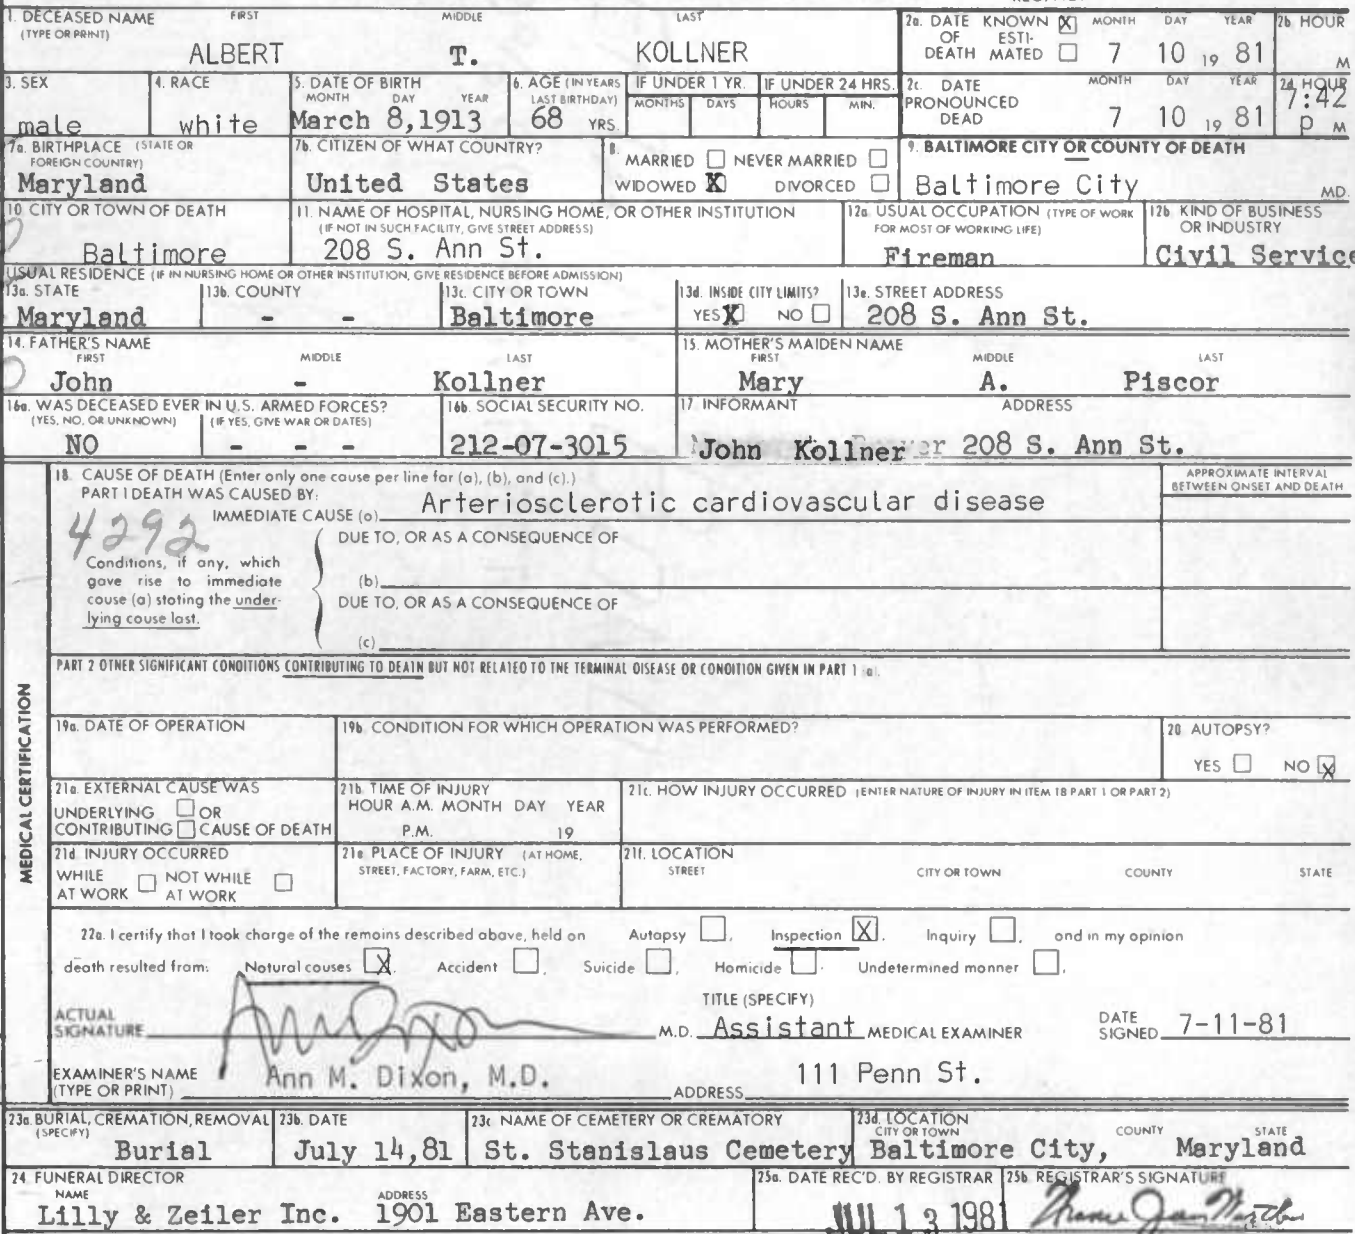 1. DECEASED NAME FIRST MIDDLE LAST
(TYPE OR PRINT)
ALBERT T. KOLLNER
2a. DATE KNOWN X MONTH DAY YEAR
OF ESTI-
DEATH MATED 7 10 19 81
2b. HOUR
M
3. SEX
male
4. RACE
white
5. DATE OF BIRTH
MONTH DAY YEAR
March 8,1913
6. AGE (IN YEARS
LAST BIRTHDAY)
68 YRS.
IF UNDER 1 YR.
MONTHS DAYS
IF UNDER 24 HRS.
HOURS MIN.
2c. DATE MONTH DAY YEAR
PRONOUNCED
DEAD 7 10 19 81
2d HOUR
7:42
p M
7a. BIRTHPLACE (STATE OR
FOREIGN COUNTRY)
Maryland
7b. CITIZEN OF WHAT COUNTRY?
United States
8.
MARRIED NEVER MARRIED
WIDOWED X DIVORCED
9. BALTIMORE CITY OR COUNTY OF DEATH
Baltimore City MD.
10. CITY OR TOWN OF DEATH
Baltimore
11. NAME OF HOSPITAL, NURSING HOME, OR OTHER INSTITUTION
(IF NOT IN SUCH FACILITY, GIVE STREET ADDRESS)
208 S. Ann St.
12a. USUAL OCCUPATION (TYPE OF WORK
FOR MOST OF WORKING LIFE)
Fireman
12b. KIND OF BUSINESS
OR INDUSTRY
Civil Service
USUAL RESIDENCE (IF IN NURSING HOME OR OTHER INSTITUTION, GIVE RESIDENCE BEFORE ADMISSION)
13a. STATE
Maryland
13b. COUNTY
- -
13c. CITY OR TOWN
Baltimore
13d. INSIDE CITY LIMITS?
YES X NO
13e. STREET ADDRESS
208 S. Ann St.
14. FATHER'S NAME
FIRST MIDDLE LAST
John - Kollner
15. MOTHER'S MAIDEN NAME
FIRST MIDDLE LAST
Mary A. Piscor
16a. WAS DECEASED EVER IN U.S. ARMED FORCES?
(YES, NO, OR UNKNOWN) (IF YES, GIVE WAR OR DATES)
NO - - -
16b. SOCIAL SECURITY NO.
212-07-3015
17. INFORMANT ADDRESS
John Kollner 208 S. Ann St.
18. CAUSE OF DEATH (Enter only one cause per line for (a), (b), and (c).)
PART I DEATH WAS CAUSED BY:
IMMEDIATE CAUSE (a) Arteriosclerotic cardiovascular disease
APPROXIMATE INTERVAL
BETWEEN ONSET AND DEATH
4292
DUE TO, OR AS A CONSEQUENCE OF
Conditions, if any, which
gave rise to immediate
cause (a) stating the under-
lying cause last.
(b)
DUE TO, OR AS A CONSEQUENCE OF
(c)
PART 2 OTHER SIGNIFICANT CONDITIONS CONTRIBUTING TO DEATH BUT NOT RELATED TO THE TERMINAL DISEASE OR CONDITION GIVEN IN PART 1 (a).
MEDICAL CERTIFICATION
19a. DATE OF OPERATION
19b. CONDITION FOR WHICH OPERATION WAS PERFORMED?
20. AUTOPSY?
YES NO X
21a. EXTERNAL CAUSE WAS
UNDERLYING OR
CONTRIBUTING CAUSE OF DEATH
21b. TIME OF INJURY
HOUR A.M. MONTH DAY YEAR
P.M. 19
21c. HOW INJURY OCCURRED (ENTER NATURE OF INJURY IN ITEM 18 PART 1 OR PART 2)
21d. INJURY OCCURRED
WHILE AT WORK NOT WHILE AT WORK
21e PLACE OF INJURY (AT HOME,
STREET, FACTORY, FARM, ETC.)
21f. LOCATION
STREET CITY OR TOWN COUNTY STATE
22a. I certify that I took charge of the remains described above, held on Autopsy , Inspection X, Inquiry , and in my opinion
death resulted from: Natural causes X, Accident , Suicide , Homicide . Undetermined manner ,
ACTUAL
SIGNATURE
M.D.
TITLE (SPECIFY)
Assistant MEDICAL EXAMINER
DATE
SIGNED 7-11-81
EXAMINER'S NAME
(TYPE OR PRINT) Ann M. Dixon, M.D.
ADDRESS 111 Penn St.
23a. BURIAL, CREMATION, REMOVAL
(SPECIFY)
Burial
23b. DATE
July 14,81
23c. NAME OF CEMETERY OR CREMATORY
St. Stanislaus Cemetery
23d. LOCATION
CITY OR TOWN COUNTY STATE
Baltimore City, Maryland
24. FUNERAL DIRECTOR
NAME ADDRESS
Lilly & Zeiler Inc. 1901 Eastern Ave.
25a. DATE REC'D. BY REGISTRAR
JUL 13 1981
25b. REGISTRAR'S SIGNATURE